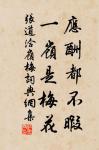 應酬都不暇
一嶺是梅花
張道洽嶺梅詞典網集